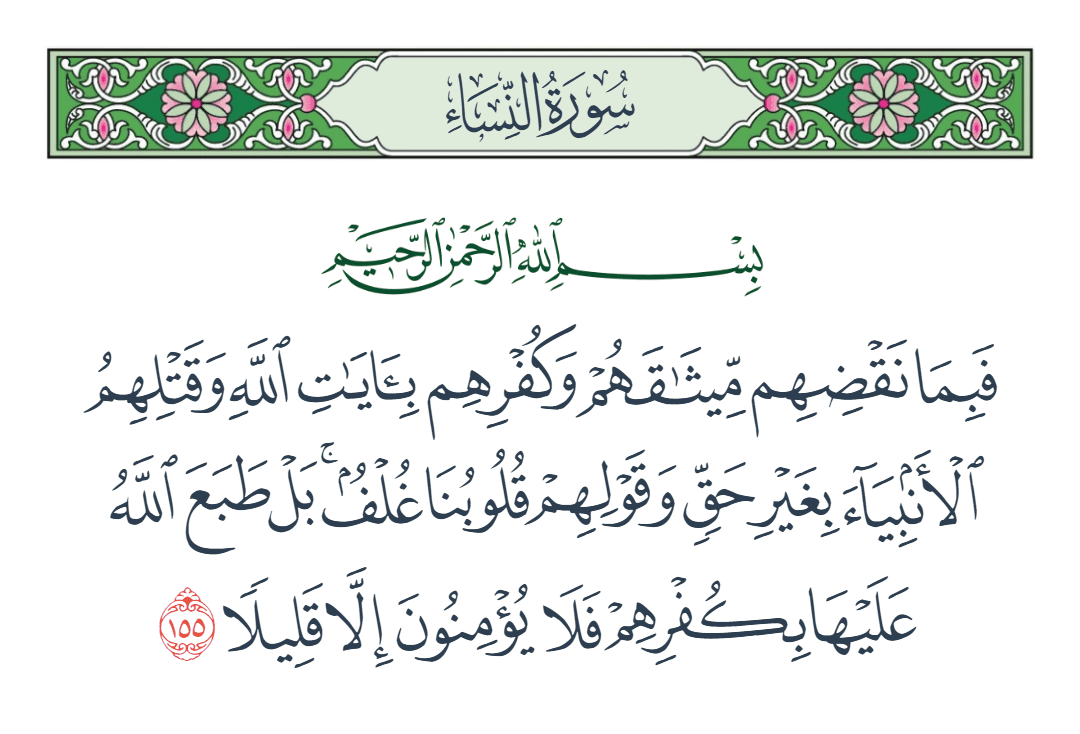 سُورَةُ النِّسَاءِ
بِسْمِ ٱللَّهِ ٱلرَّحْمَٰنِ ٱلرَّحِيمِ
فَبِمَا نَقْضِهِم مِّيثَٰقَهُمْ وَكُفْرِهِم بِـَٔايَٰتِ ٱللَّهِ وَقَتْلِهِمُ
ٱلْأَنۢبِيَآءَ بِغَيْرِ حَقٍّ وَقَوْلِهِمْ قُلُوبُنَا غُلْفٌۢ ۚ بَلْ طَبَعَ ٱللَّهُ
عَلَيْهَا بِكُفْرِهِمْ فَلَا يُؤْمِنُونَ إِلَّا قَلِيلًا ١٥٥